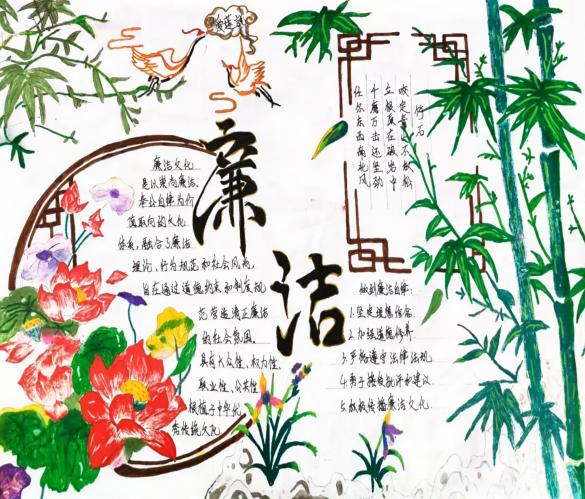 廉洁
竹石
咬定青山不放松
立根原在破岩中
千磨万击还坚劲
任尔东西南北风
廉洁文化
是以崇尚廉洁、
奉公自律为价
值取向的文化
体系,融合了廉洁
理论、行为规范和社会风尚,
旨在通过道德约束和制度规
范营造清正廉洁
的社会氛围。
具有大众性、
职业性、公共性
根植于中华优
秀传统文化
做到廉洁自律:
1.坚定理想信念
2.加强道德修养
3.严格遵守法律法规
4.勇于接受批评和建议
5.积极传播廉洁文化